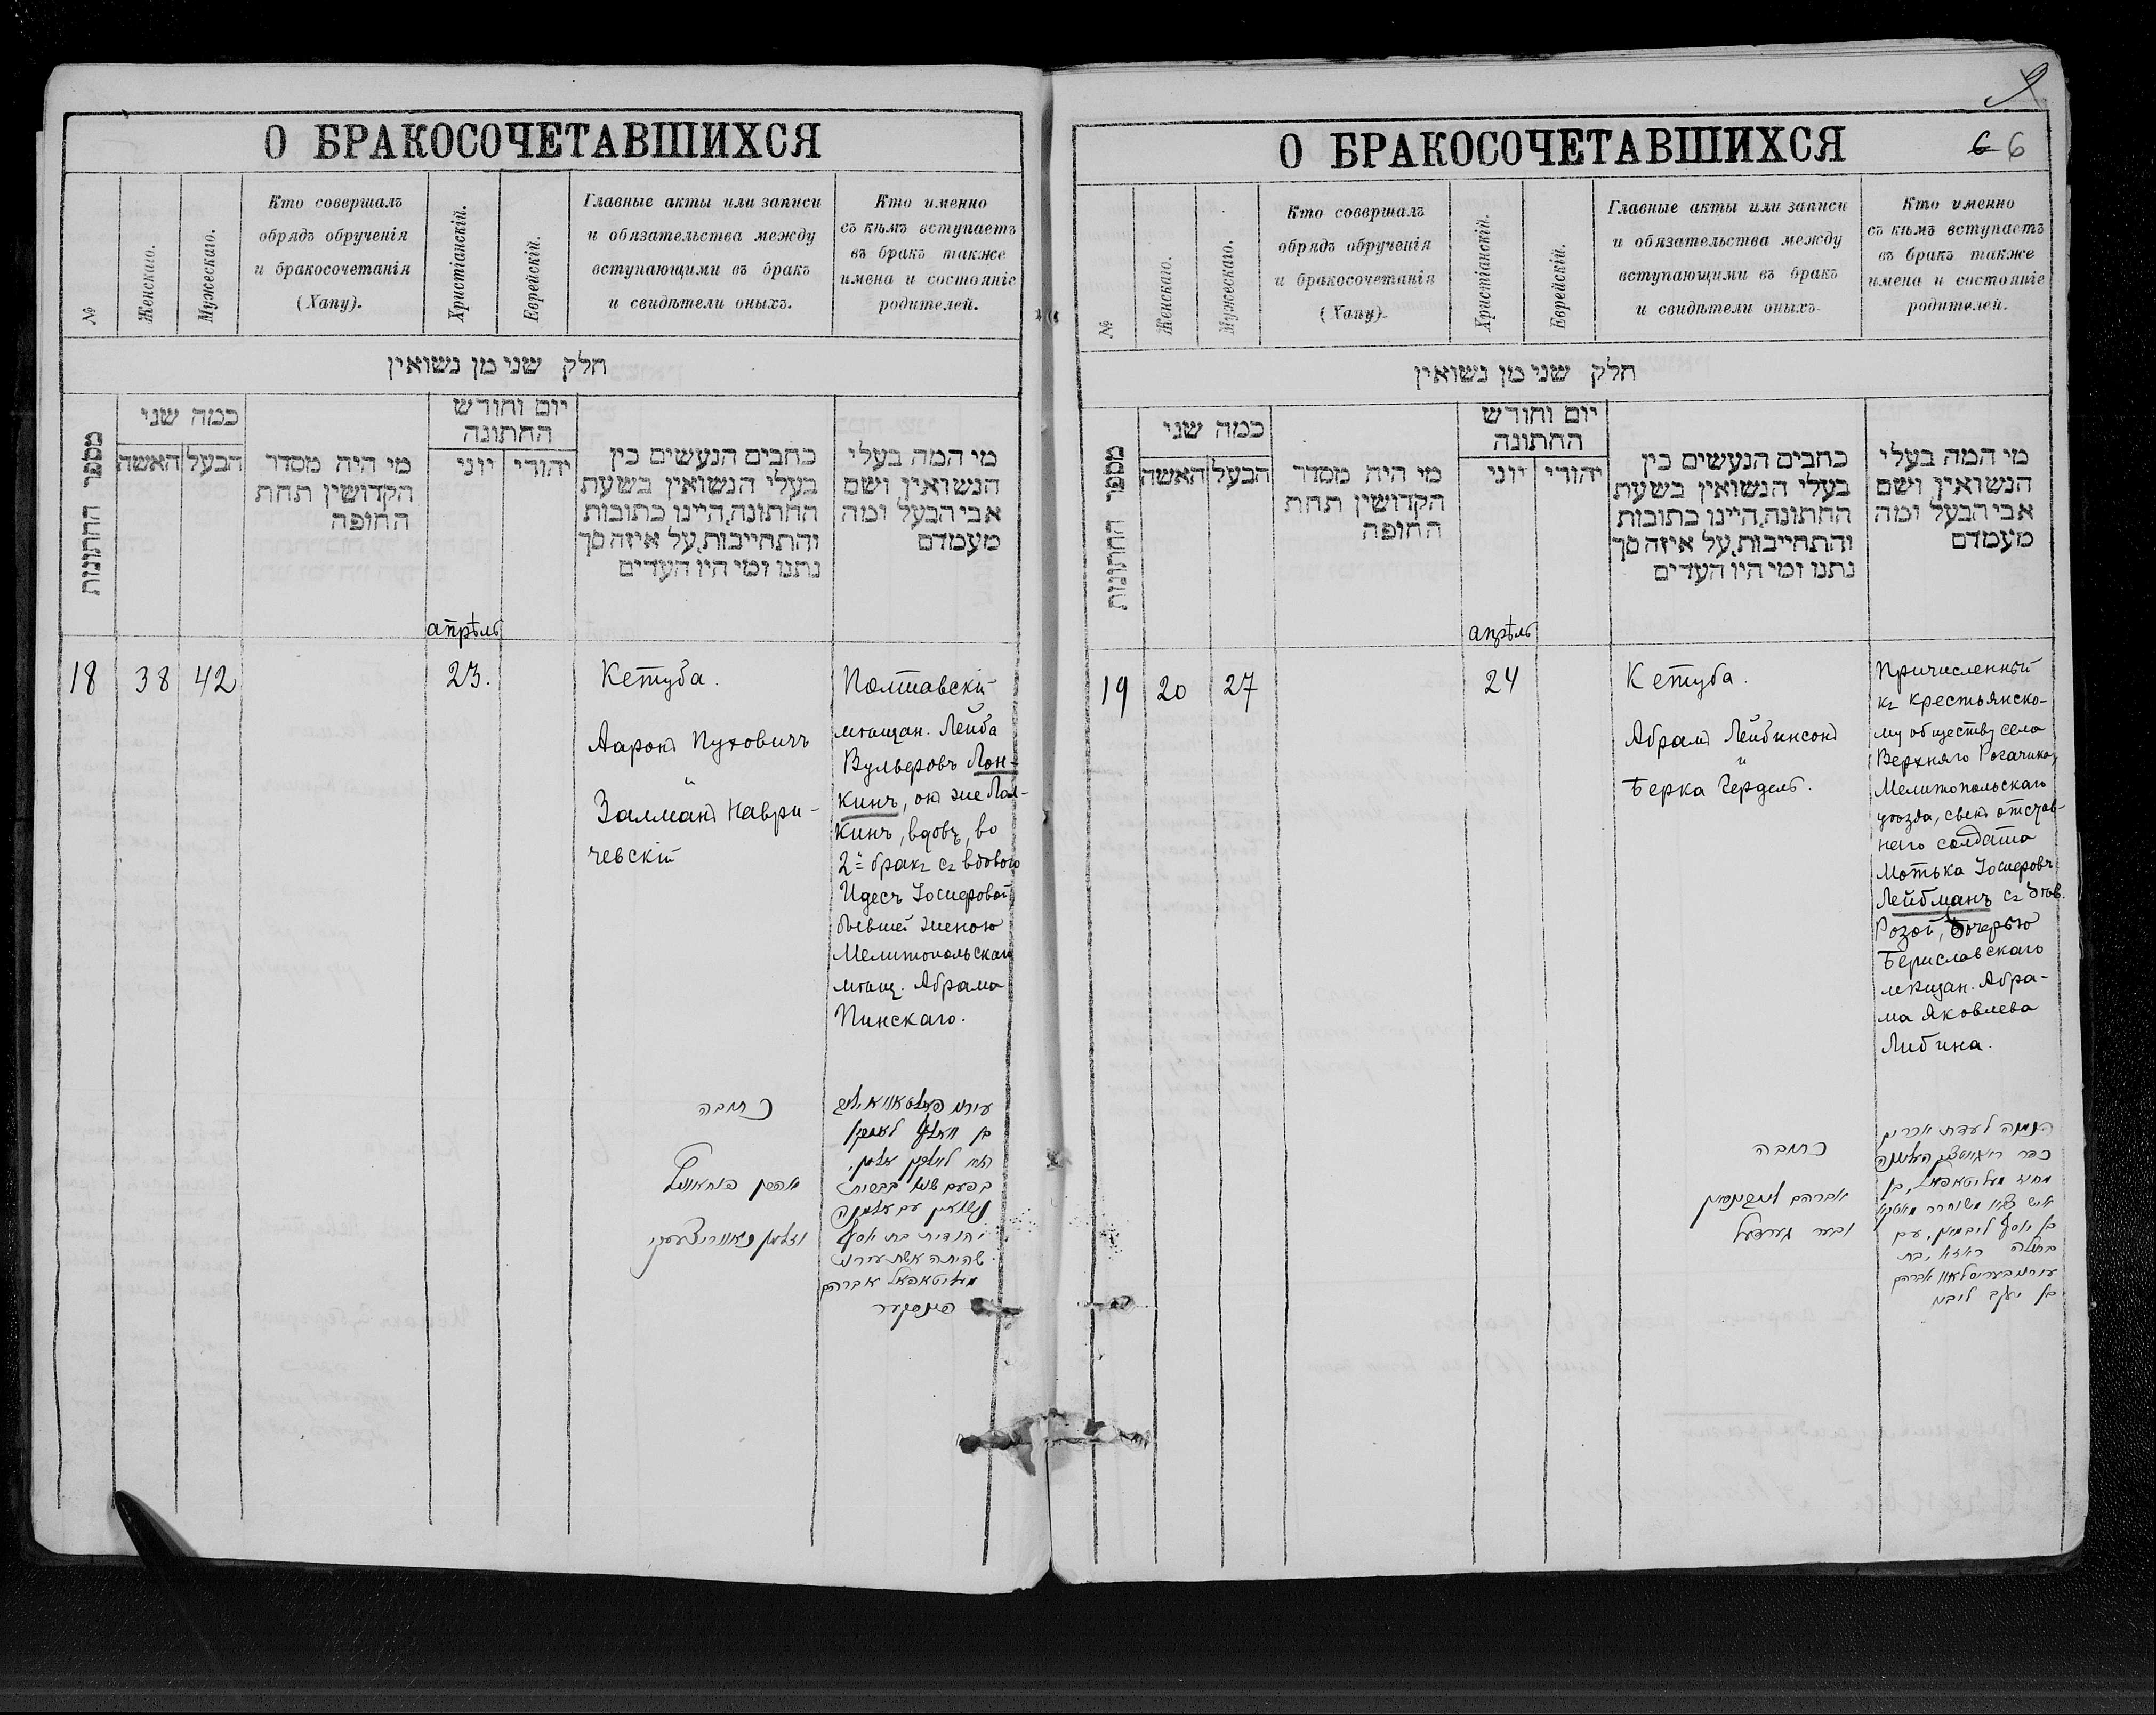 О БРАКОСОЧЕТАВШИХСЯ
№
Женскаго.
Мужескаго.
Кто совершалъ
обрядъ обрученія
и бракосочетанія
(Хапу).
Христіанскій.
Еврейскій.
Главные акты или записи
и обязательства между
вступающими въ бракъ
и свидѣтели оныхъ.
Кто именно
съ кѣмъ вступаетъ
въ бракъ также
имена и состояніе
родителей.
חלק שני מן נשואין
מספר החתונות
כמה שני
האשה
הבעל
מי היה מסדר
הקדושין תחת
החופה
יום וחודש
החתונה
יוני
יהודי
כחבים הנעשים כין
בעלי הנשואין בשעת
החתונה, היינו כתובות
והתחייבות, על איזה סך
נתנו ומי היו העדים
מי המה בעלי
הנשואין, ושם
אבי הבעל ומה
מעמדם
апрѣль
18
38
42
23.
Кетуба.
Ааронъ Пуховичъ
и
Залманъ Наври-
чевскій
Полтавскій
мѣщан. Лейба
Вульфовъ Лон-
кинъ, онъ же Лап-
кинъ, вдовъ, во
2й бракъ съ вдовою
Идесъ Іосифовой
бывшей женою
Мелитопольскаго
мѣщ. Абрама
Пинскаго.
כתובה
אהרן
וזלמן
בן וואלף
בפעם שני
נשואין עם אלמנה
יהודית בת יוסף
שהיתה אשת עירוני
מעליטאפאל אברהם
פינסקער
О БРАКОСОЧЕТАВШИХСЯ
9
6 6
№
Женскаго.
Мужескаго.
Кто совершалъ
обрядъ обрученія
и бракосочетанія
(Хапу).
Христіанскій.
Еврейскій.
Главные акты или записи
и обязательства между
вступающими въ бракъ
и свидѣтели оныхъ.
Кто именно
съ кѣмъ вступаетъ
въ бракъ также
имена и состояніе
родителей.
חלק שני מן נשואין
מספר החתונות
כמה שני
האשה
הבעל
מי היה מסדר
הקדושין תחת
החופה
יום וחודש
החתונה
יוני
יהודי
כחבים הנעשים כין
בעלי הנשואין בשעת
החתונה, היינו כתובות
והתחייבות, על איזה סך
נתנו ומי היו העדים
מי המה בעלי
הנשואין, ושם
אבי הבעל ומה
מעמדם
апрѣль
19
20
27
24
Кетуба.
Абрамъ Лейбинсонъ
и
Берка Чердель.
Причисленный
къ крестьянско-
му обществу села
Верхняго Рогачика,
Мелитопольскаго
уѣзда, сынъ отстав-
наго солдата
Мотька Іосифовъ
Лейбманъ съ дѣв.
Розой, дочерью
Бериславскаго
мѣщан. Абра-
ма Яковлева
Либина.
כתובה
אברהם
ובער
הנמנה לעדת אכרים
כפר
מחוז מעליטאפאל, בן
איש צבא משוחרר
בן יוסף ליבמאן, עם
בתולה ראזא, בת
אברהם
בן יעקב ליבין